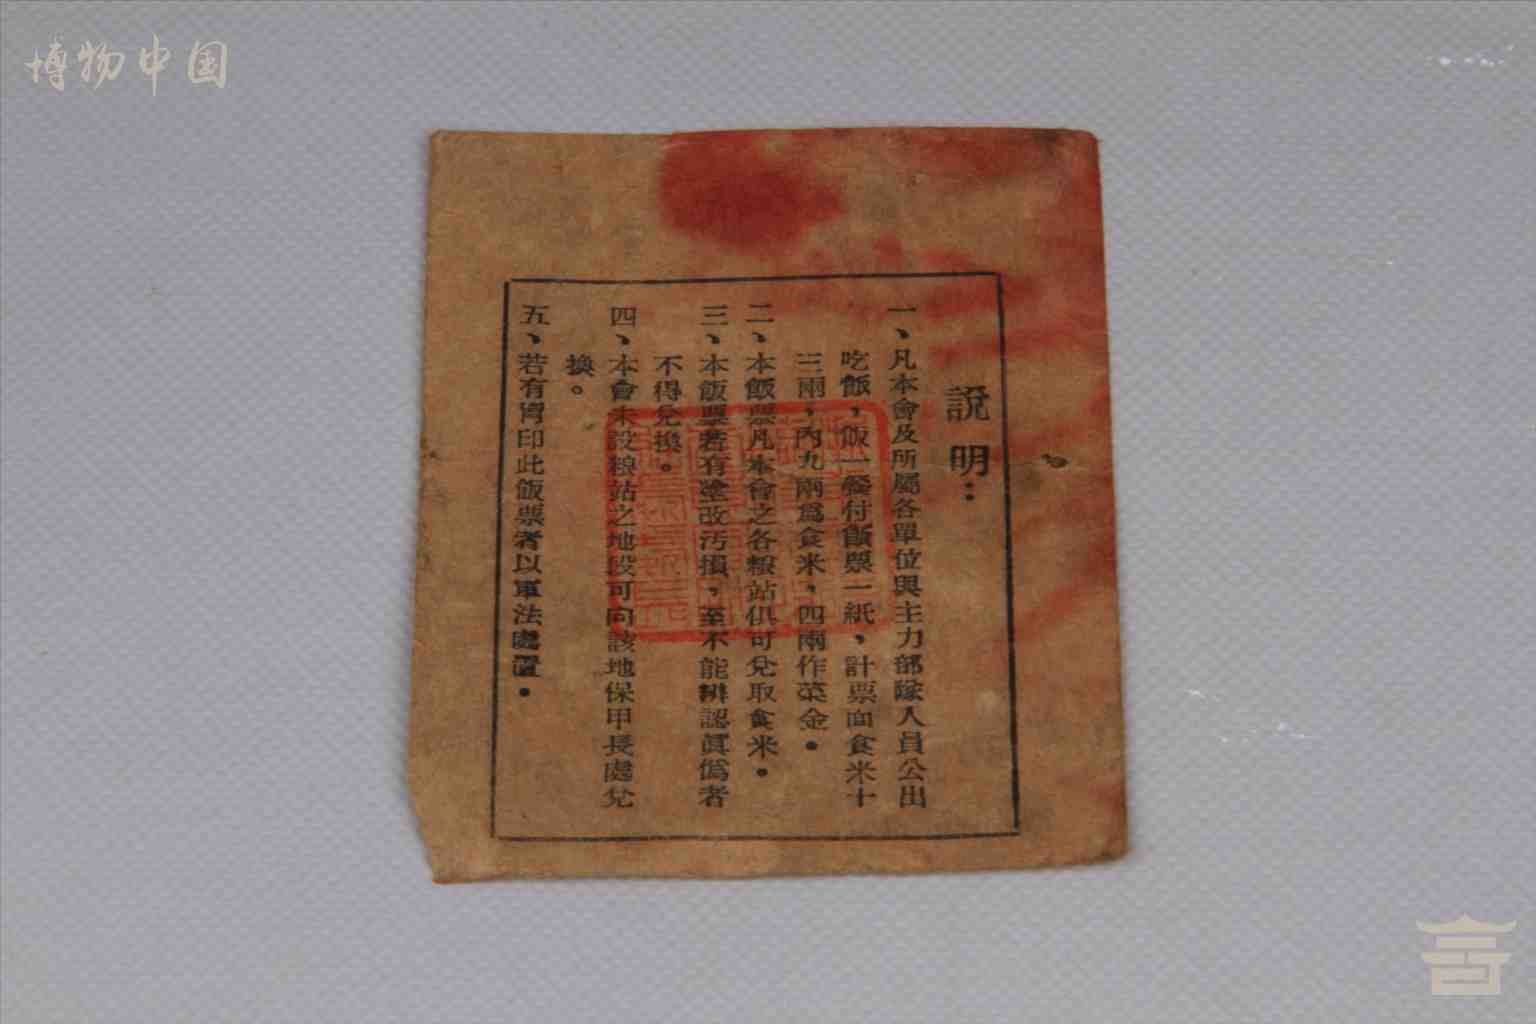 博物中国
說明：
一、凡本會及所屬各單位與主力部隊人員公出
吃飯，飯一餐付飯票一紙，計票面食米十
三兩，內九兩爲食米，四兩作菜金。
二、本飯票凡本會之各粮站俱可兌取食米。
三、本飯票若有塗改汚損，至不能辨認眞僞者
不得兌換。
四、本會未設粮站之地段可向該地保甲長處兌
換。
五、若有冐印此飯票者以軍法處置。